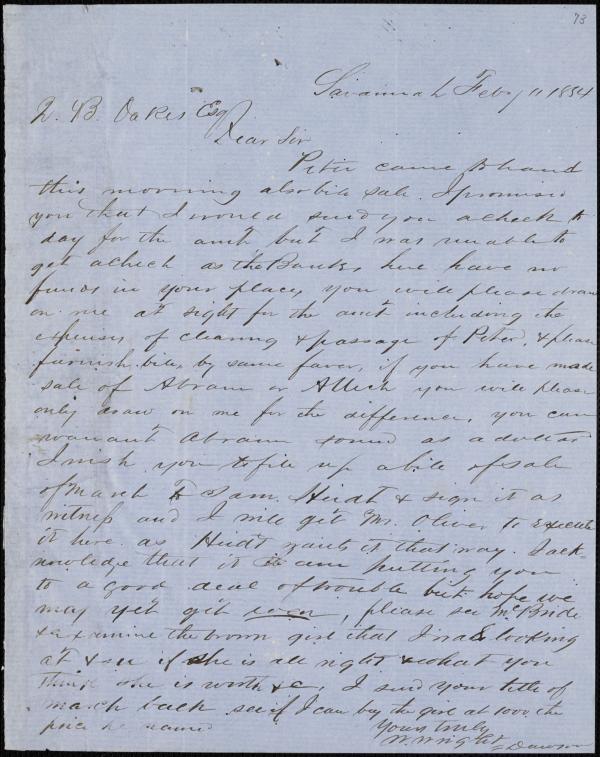 73
Savannah Feby 11 1854
Z. B. Oakes Esq
Dear Sir
Peter came to hand
this morning also bill sale. I promised
you that I would send you a check to
day for the amt, but I was unable to
get a check as the Banks here have no
funds in your place, you will please draw
on me at sight for the amt including the
expenses of clearing & passage of Peter, & please
furnish bill, by same favor, if you have made
sale of Abram or Alleck you will please
only draw on me for the difference, you can
warrant Abram sound as a dollar
I wish you to fill up a bill of sale
of March to Sam. Heidt & sign it as
witness and I will get Mr. Oliver to execute
it here as Heidt wants it that way. I ack-
nowledge that I am putting you
to a good deal of trouble but hope we
may yet get even, please see McBride
& examine the brown girl that I was looking
at & see if she is all right & what you
think she is worth &c, I send your title of
march back. see if I can buy the girl at 1000. the
price he named
Yours truly
W. Wright